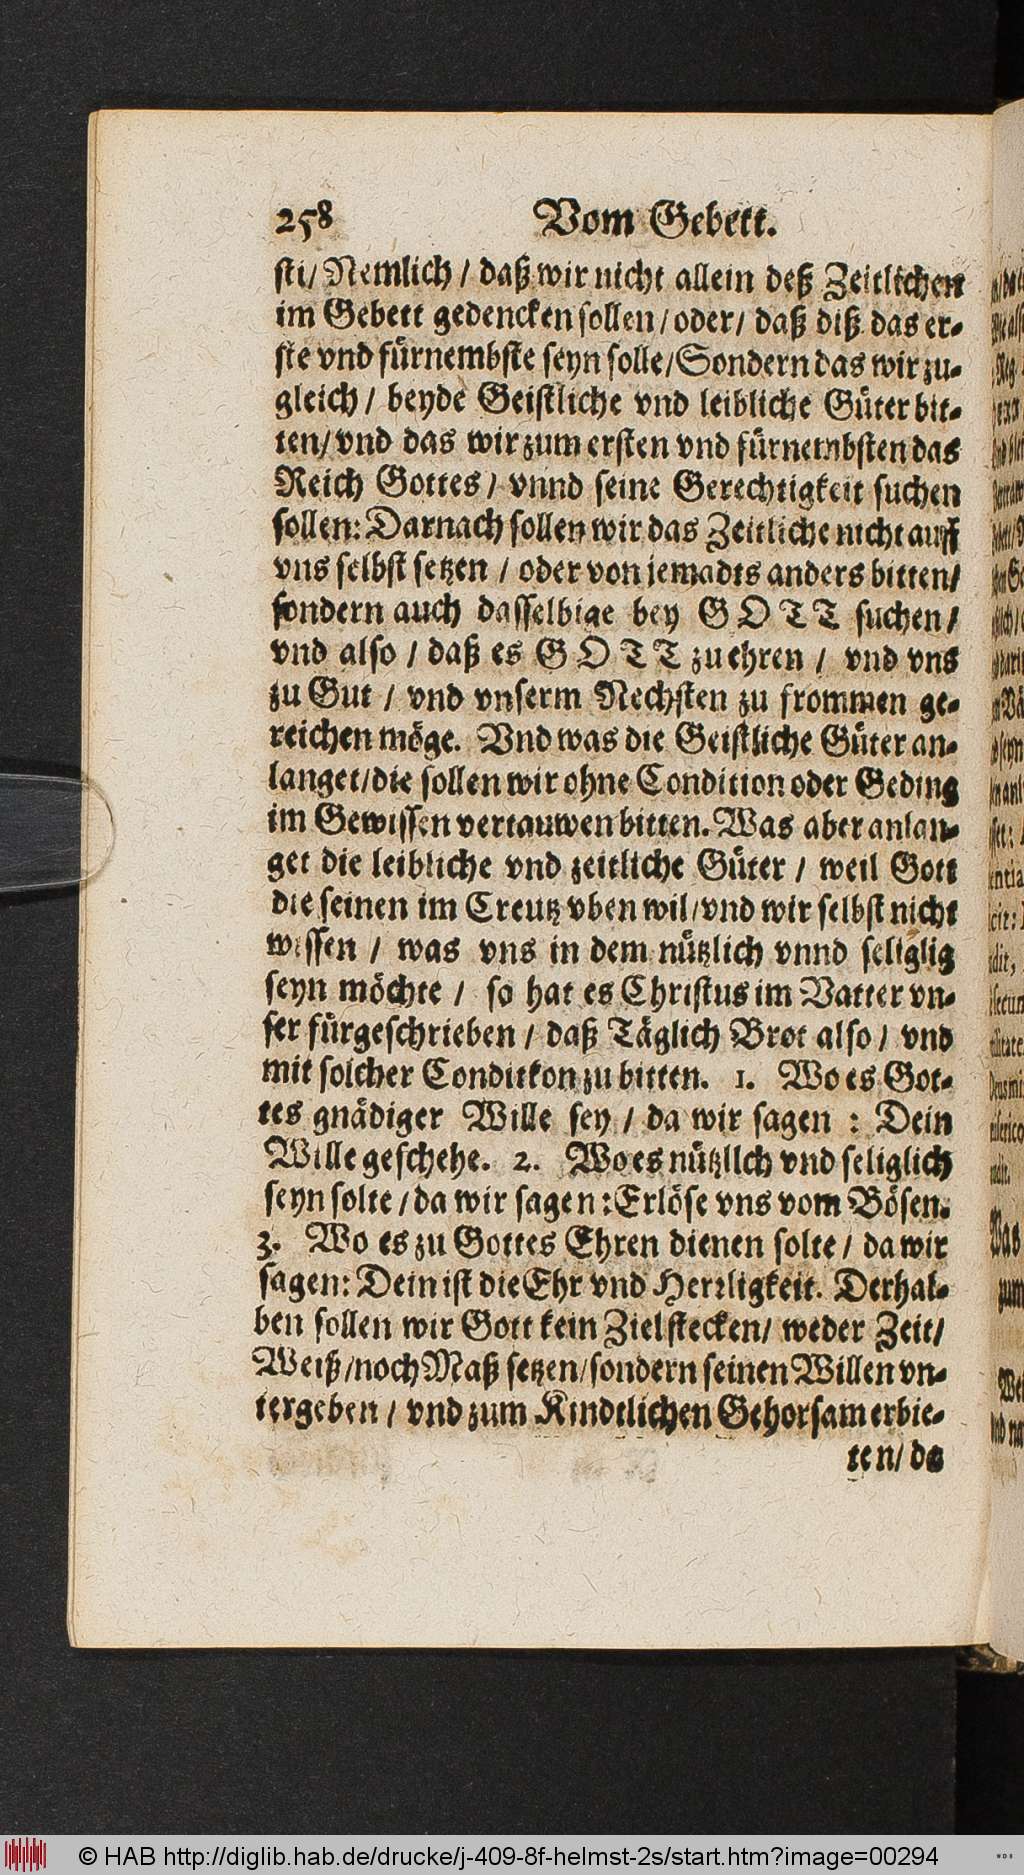 258 Vom Gebett.
sti/ Nemlich / daß wir nicht allein deß Zeitlichen
im Gebett gedencken sollen / oder / daß diß das er-
ste vnd fürnembste seyn solle / Sondern das wir zu-
gleich / beyde Geistliche vnd leibliche Güter bit-
ten / vnd das wir zum ersten vnd fürnembsten das
Reich Gottes / vnnd seine Gerechtigkeit suchen
sollen: Darnach sollen wir das Zeitliche nicht auff
vns selbst setzen / oder von jemadts anders bitten /
sondern auch dasselbige bey GOTT suchen /
vnd also / daß es GOTT zu ehren / vnd vns
zu Gut / vnd vnserm Nechsten zu frommen ge-
reichen möge. Vnd was die Geistliche Güter an-
langet / die sollen wir ohne Condition oder Geding
im Gewissen vertauwen bitten. Was aber anlan-
get die leibliche vnd zeitliche Güter / weil Gott
die seinen im Creutz vben wil / vnd wir selbst nicht
wissen / was vns in dem nützlich vnnd seliglig
seyn möchte / so hat es Christus im Vatter vn-
ser fürgeschrieben / daß Täglich Brot also / vnd
mit solcher Conditkon zu bitten. 1. Wo es Got-
tes gnädiger Wille sey / da wir sagen : Dein
Wille geschehe. 2. Wo es nützllch vnd seliglich
seyn solte / da wir sagen : Erlöse vns vom Bösen.
3. Wo es zu Gottes Ehren dienen solte / da wir
sagen: Dein ist die Ehr vnd Herrligkeit. Derhal-
ben sollen wir Gott kein Ziel stecken / weder Zeit /
Weiß / noch Maß setzen / sondern seinen Willen vn-
tergeben / vnd zum Kindtlichen Gehorsam erbie-
ten / da
© HAB http://diglib.hab.de/drucke/j-409-8f-helmst-2s/start.htm?image=00294